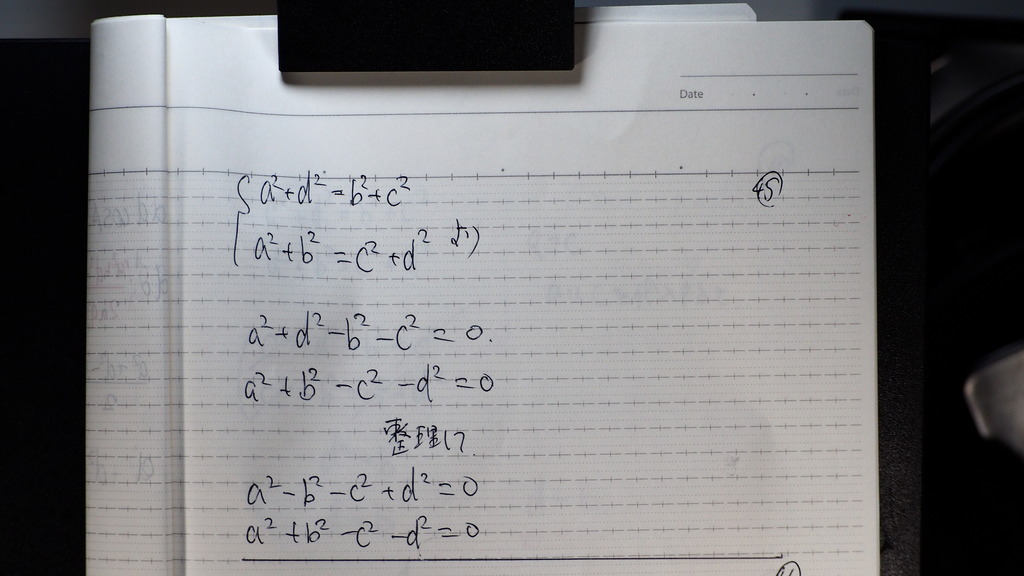 Date
a²+d²=b²+c²
㊺
a²+b²=c²+d² より
a²+d²-b²-c²=0.
a²+b²-c²-d²=0
整理して
a²-b²-c²+d²=0
a²+b²-c²-d²=0